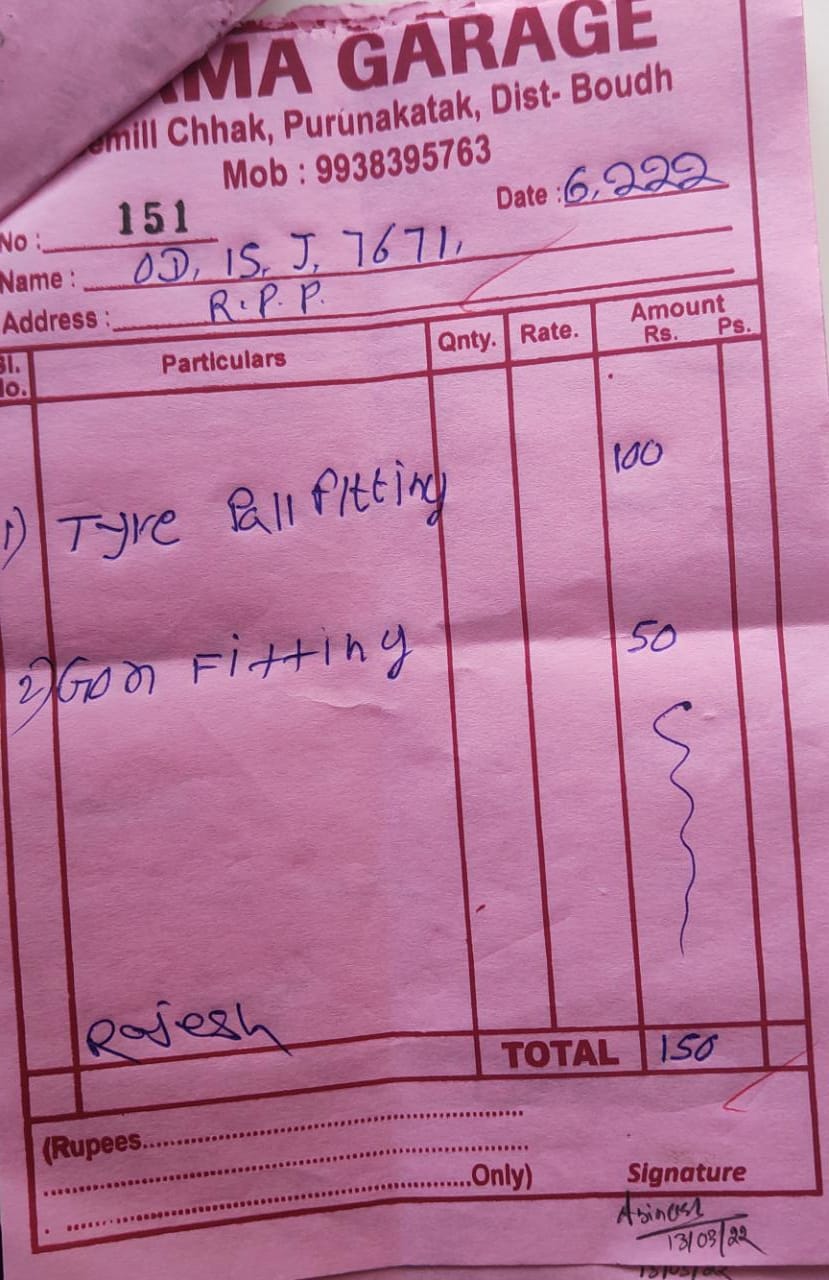 AMA GARAGE
emill Chhak, Purunakatak, Dist- Boudh
Mob : 9938395763
No : 151
Date : 6,222
Name : OD, 15, J, 7671,
Address : R.P.P.
Sl. No. Particulars Qnty. Rate. Amount Rs. Ps.
1) Tyre Pall Fitting 100
2) Gon Fitting 50
Rajesh
TOTAL 150
(Rupees
Only)
Signature
13/03/22